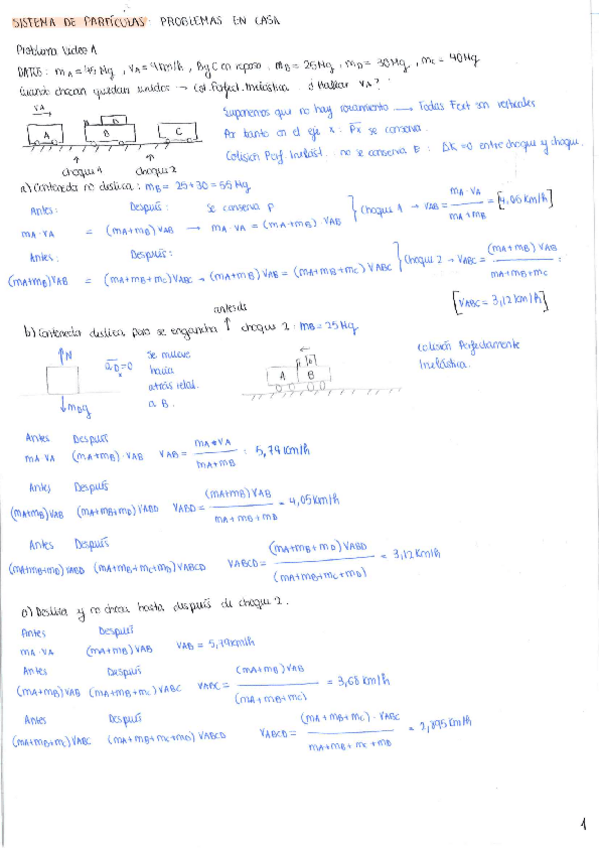 SISTEMA DE PARTÍCULAS: PROBLEMAS EN CASA
Problema Vídeo A
DATOS: mA = 45 Mg, VA = 9 km/h, B y C en reposo. mB = 25 Mg, mD = 30 Mg, mC = 40 Mg
Cuando chocan quedan unidos → Col. Perfect. Inelástica. ¿Hallar VA?
VA
A
B
D
C
choque 1
choque 2
Suponemos que no hay rozamiento → Todas Fext son verticales
Por tanto en el eje x: Px se conserva.
Colisión Perf. Inelást. no se conserva E: ΔK ≠ 0 entre choque y choque.
a) Contenedor no desliza: mB = 25 + 30 = 55 Mg
Antes: Después: Se conserva P
mA · VA = (mA + mB) VAB → mA · VA = (mA + mB) VAB } Choque 1 → VAB = mA · VA / mA + mB = [4,05 km/h]
Antes: Después:
(mA+mB)VAB = (mA+mB+mC)VABC → (mA+mB)VAB = (mA+mB+mC)VABC } Choque 2 → VABC = (mA+mB)VAB / mA+mB+mC =
[VABC = 3,12 km/h]
antes de
b) Contenedor desliza, pero se engancha ↑ choque 2: mB = 25 Mg
N
mDg
aDx = 0
Se mueve
hacia
atrás relat.
a B.
A
B
D
Colisión Perfectamente
Inelástica.
Antes Después
mA VA (mA+mB) · VAB VAB = mA · VA / mA + mB = 5,79 km/h
Antes Después
(mA+mB)VAB (mA+mB+mD)VABD VABD = (mA+mB)VAB / mA + mB + mD = 4,05 km/h
Antes Después
(mA+mB+mD)VABD (mA+mB+mC+mD)VABCD VABCD = (mA+mB+mD)VABD / (mA+mB+mC+mD) = 3,12 km/h
c) Desliza y no choca hasta después de choque 2.
Antes Después
mA · VA (mA+mB)VAB VAB = 5,79 km/h
Antes Después
(mA+mB)VAB (mA+mB+mC)VABC VABC = (mA+mB)VAB / (mA+mB+mC) = 3,68 km/h
Antes Después
(mA+mB+mC)VABC (mA+mB+mC+mD)VABCD VABCD = (mA+mB+mC) · VABC / mA+mB+mC+mD = 2,895 km/h
1